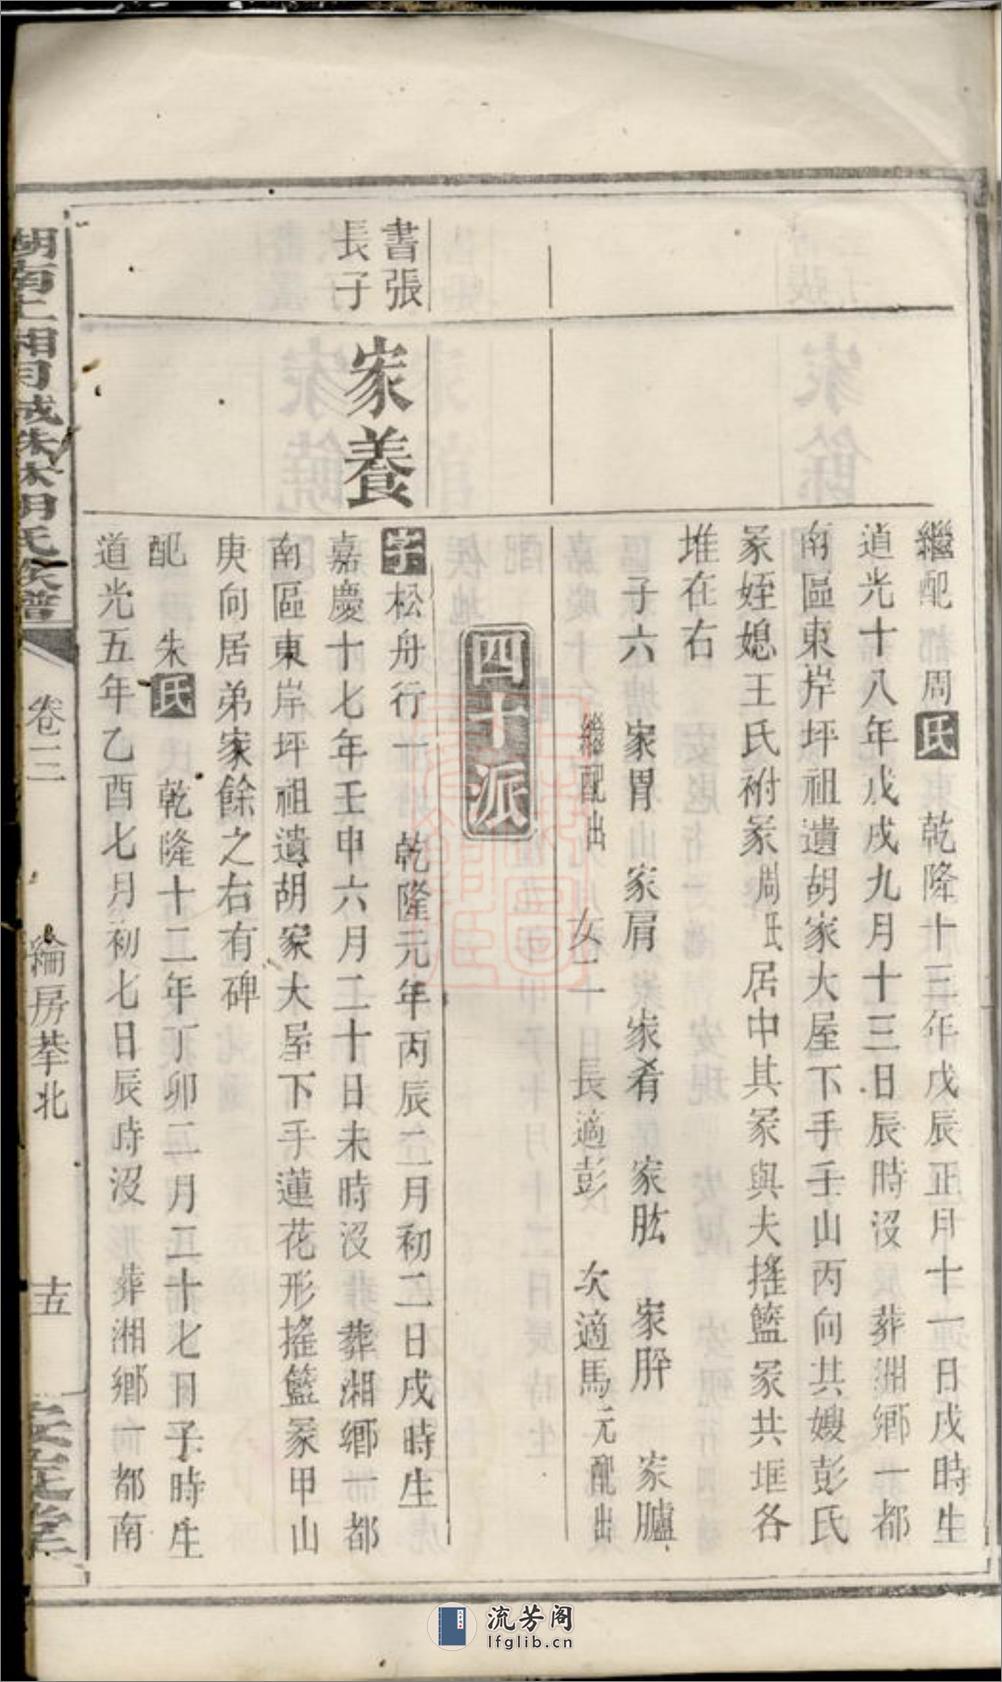 繼配　周氏　乾隆十三年戊辰正月十一日戌時生
道光十八年戊戌九月十三日辰時沒　葬湘鄉一都
南區東岸坪祖遺胡家大屋下手壬山丙向共嫂彭氏
冢姪媳王氏祔冢周氏居中其冢與夫搖籃冢共堆各
堆在右
子六　家胃　家肩　家肴　家肱　家胖　家臚
繼配出　女二　長適彭　次適馬元配出
四十派
書張
長子
家養
字松舟行一　乾隆元年丙辰二月初二日戌時生
嘉慶十七年壬申六月二十日未時沒　葬湘鄉一都
南區東岸坪祖遺胡家大屋下手蓮花形搖籃冢甲山
庚向居弟家餘之右有碑
配　朱氏　乾隆十二年丁卯二月二十七日子時生
道光五年乙酉七月初七日辰時沒　葬湘鄉一都南
胡氏族譜
卷三
綸房 北
十五
流芳阁
lfglib.cn